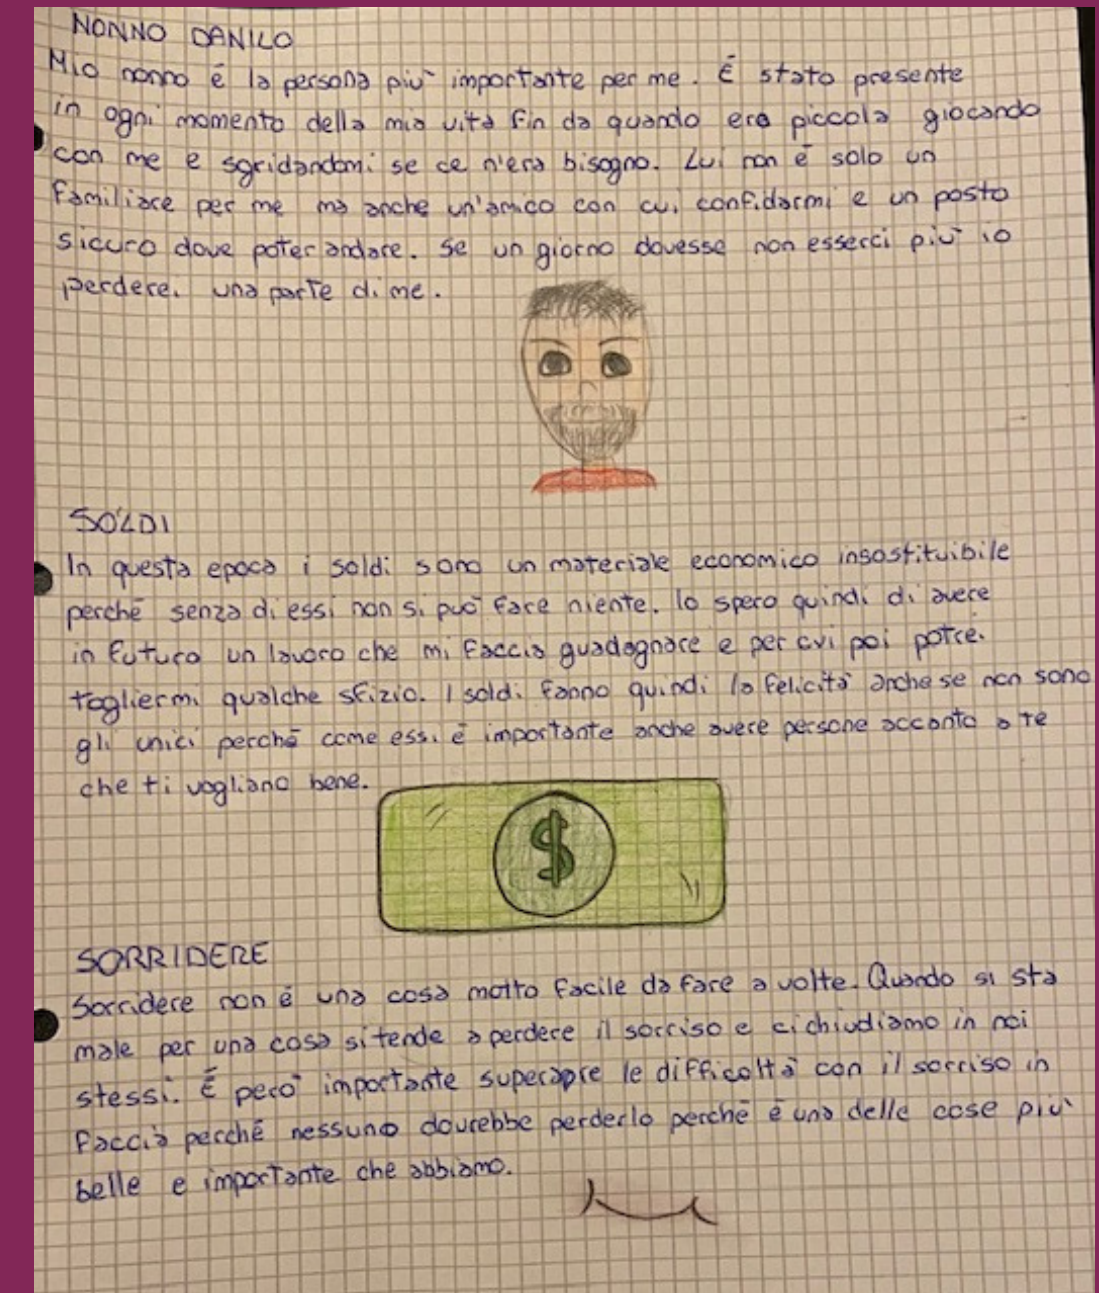 NONNO DANILO
Mio nonno è la persona più importante per me. È stato presente
in ogni momento della mia vita fin da quando ero piccola giocando
con me e sgridandomi se ce n'era bisogno. Lui non è solo un
familiare per me ma anche un'amico con cui confidarmi e un posto
sicuro dove poter andare. Se un giorno dovesse non esserci più io
perderei una parte di me.
SOLDI
In questa epoca i soldi sono un materiale economico insostituibile
perché senza di essi non si può fare niente. Io spero quindi di avere
in futuro un lavoro che mi faccia guadagnare e per cui poi potrei
togliermi qualche sfizio. I soldi fanno quindi la felicità anche se non sono
gli unici perché come essi è importante anche avere persone accanto a te
che ti vogliano bene.
$
SORRIDERE
Sorridere non è una cosa molto facile da fare a volte. Quando si sta
male per una cosa si tende a perdere il sorriso e ci chiudiamo in noi
stessi. È però importante superare le difficoltà con il sorriso in
faccia perché nessuno dovrebbe perderlo perché è una delle cose più
belle e importante che abbiamo.